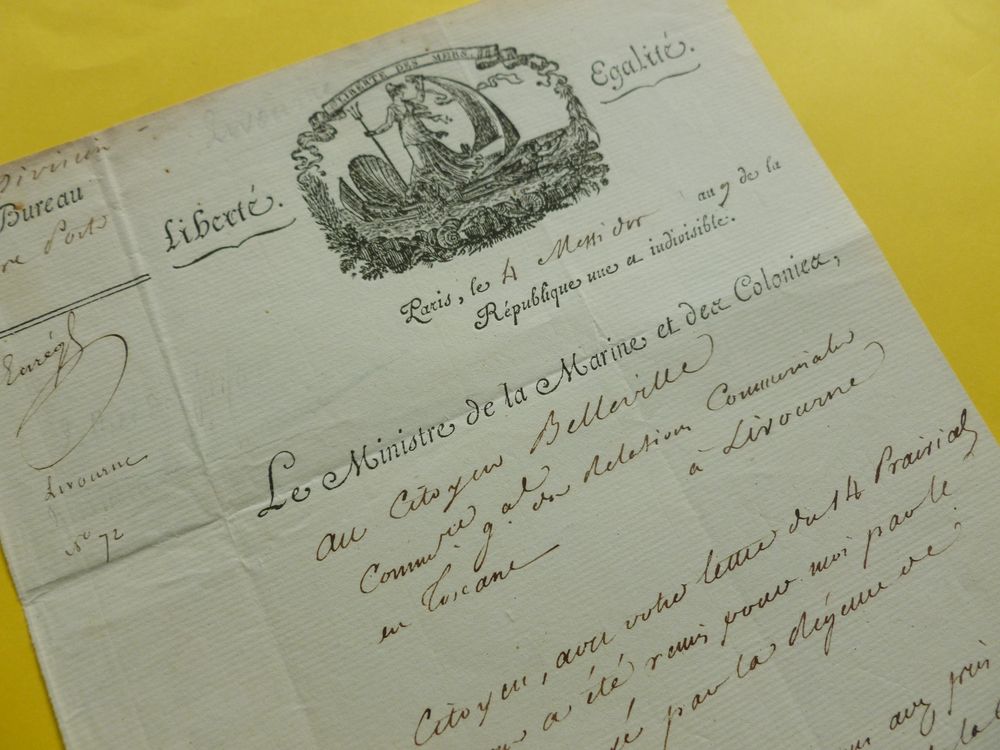 LIBERTÉ DES MERS.
Liberté.
Egalité.
Division
Bureau
Ports
Paris, le 4 Messidor an 9 de la
République une et indivisible.
Enrég
Livourne
No 72
Le Ministre de la Marine et des Colonies,
au Citoyen Belleville
Commre gal des Relations Commerciales
en Toscane
à Livourne
Citoyen, avec votre lettre du 14 Prairial
a été remis pour moi par le
par la